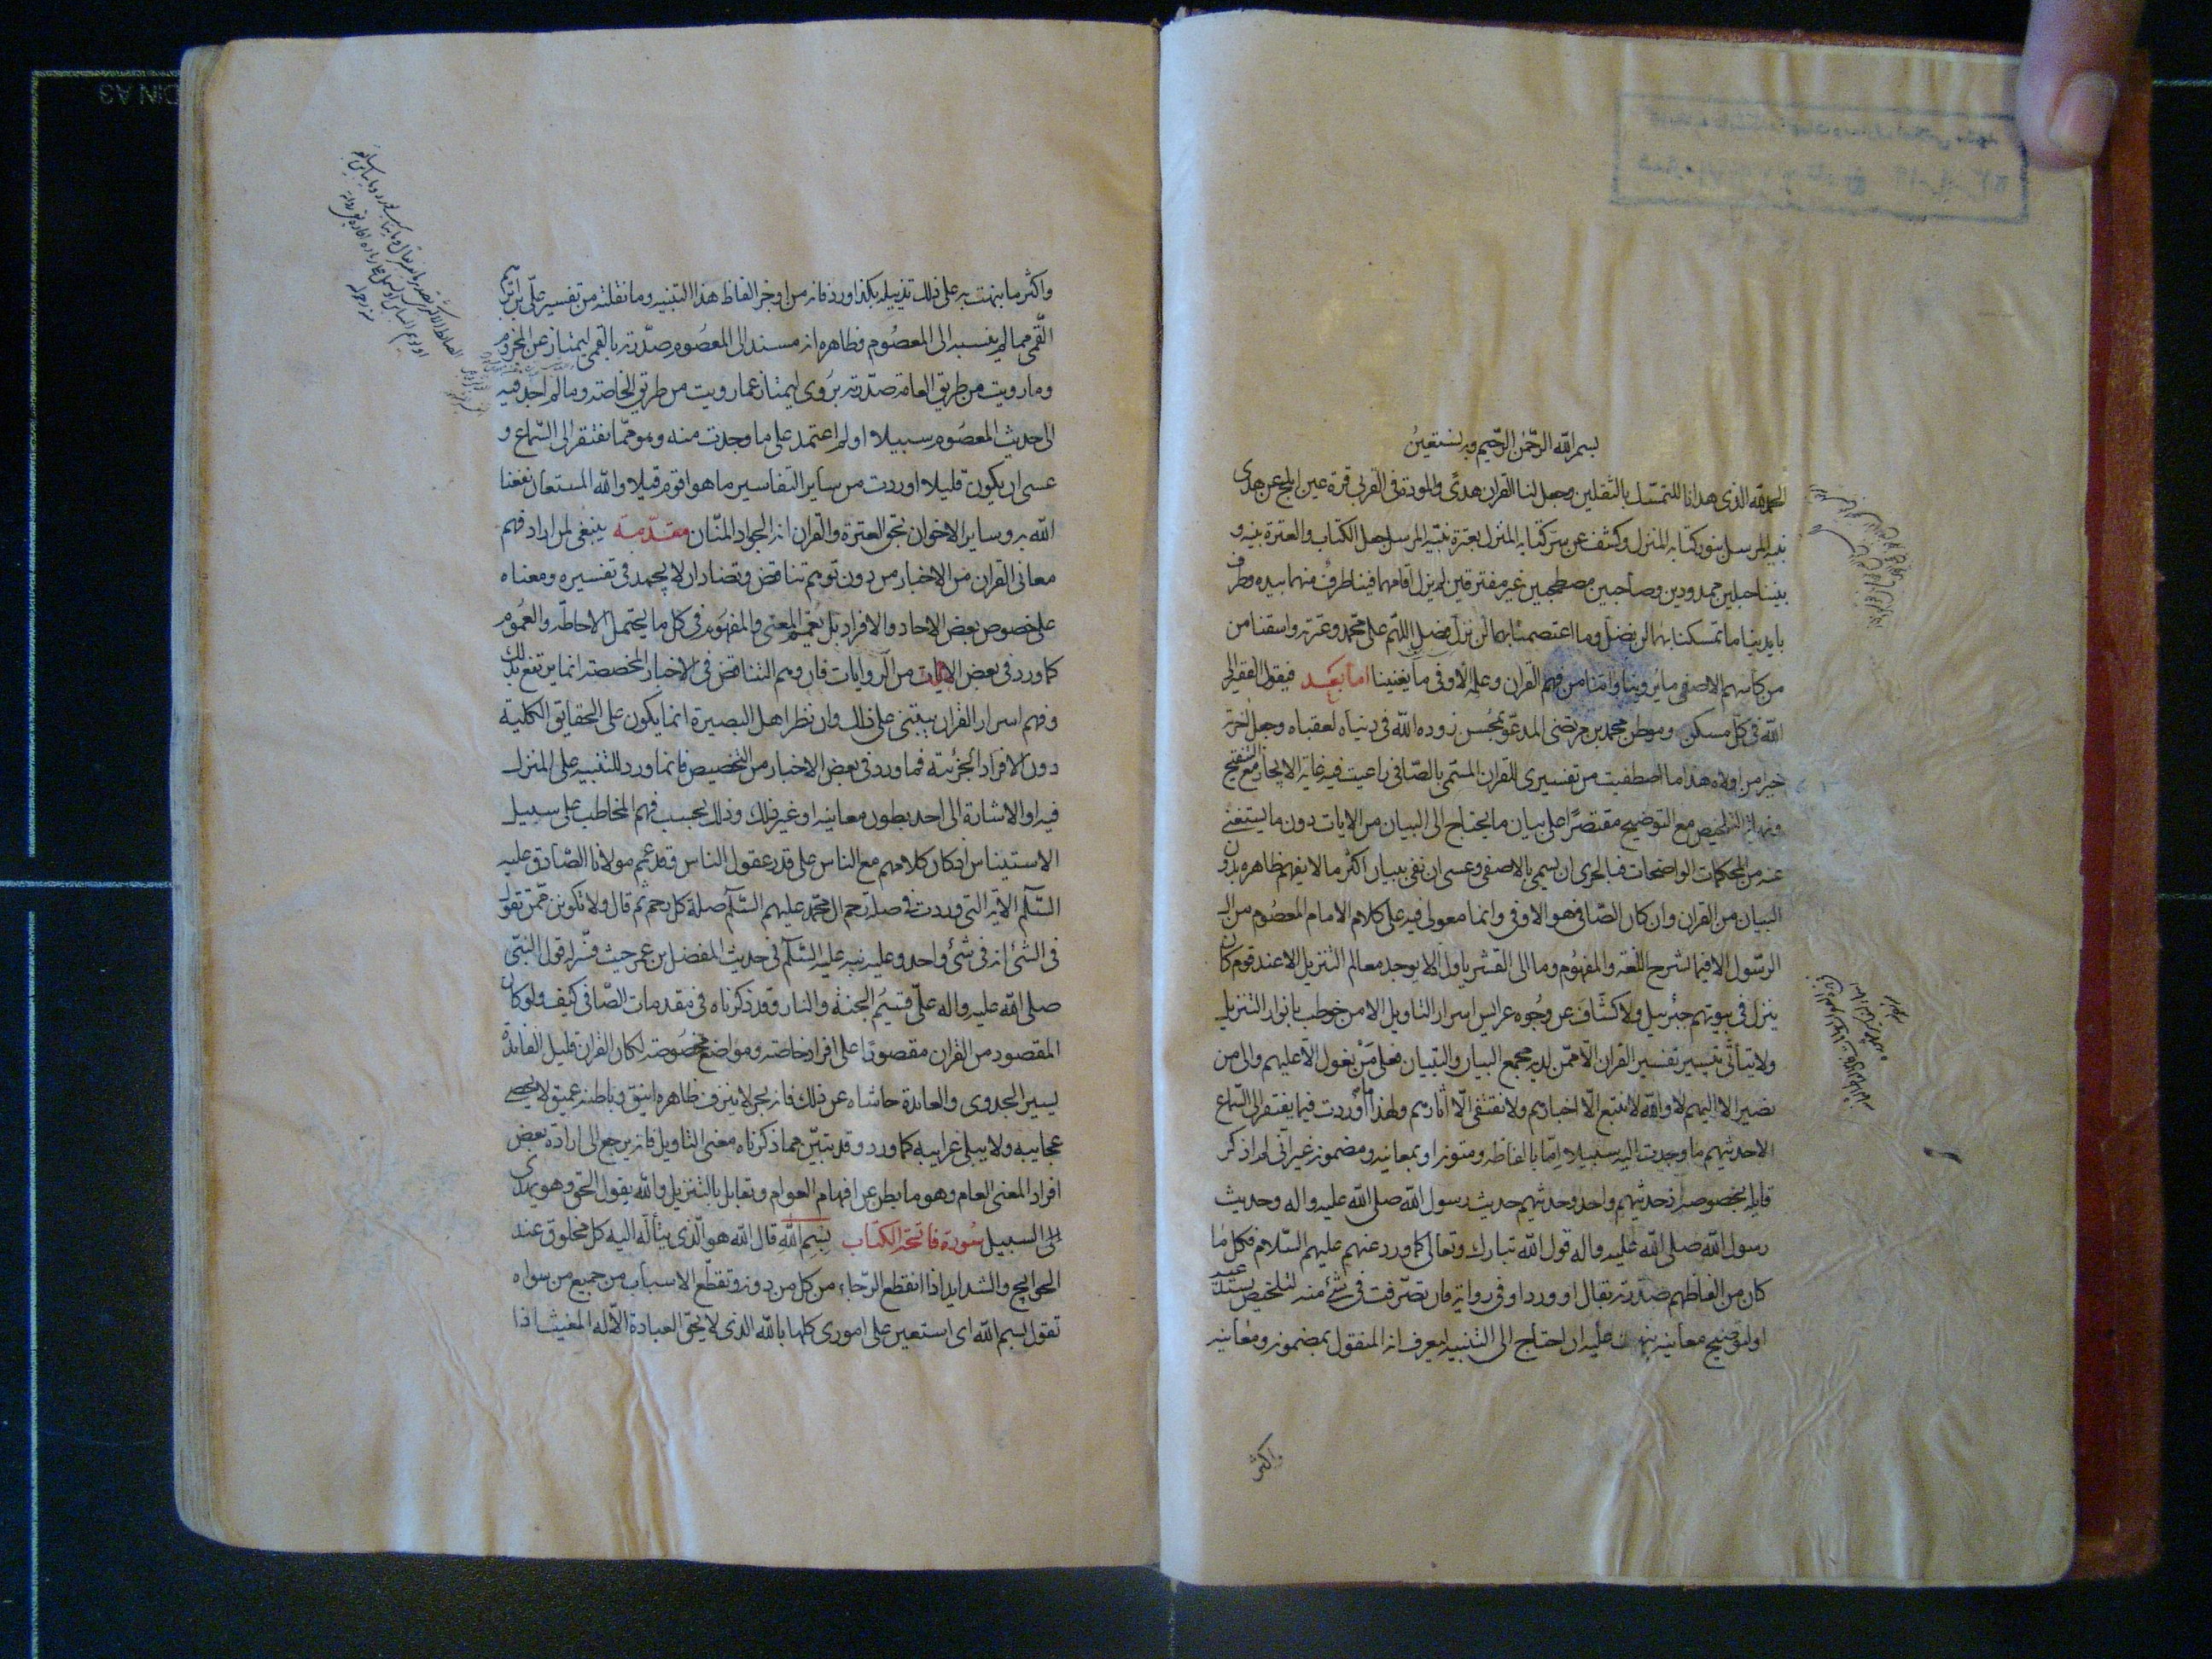 بسم الله الرحمن الرحيم وبه نستعين
الحمد لله الذى هدانا للتمسّك بالثقلين وجعل لنا القران هدًى والمودة فى القربى قرة عين
نبيه المرسل بنور كتابه المنزل وكشف عن سرّ كتابه المنزل بعترة نبيّه المرسل جعل الكتاب والعترة بينه و
بيننا حبلين ممدودين وصاحبين مصطحبين غير مفترقين لم يزل اقامهما فينا طرف منهما بيده وطرف
بايدينا ما تمسكنا بهما لن نضل وما اعتصمنا بهما لن نزل فصل اللهم على محمد وعترته واسقنا من
من كاسهم الاصفى ما يروينا واتنا من فهم القران وعلمه الاوفى ما يغنينا اما بعد فيقول الفقير الى
الله فى كل مسكن وموطن محمد بن مرتضى المدعو بمحسن زوده الله فى دنياه لعقباه وجعل اخرته
خيرا من اولاه هذا ما اصطفيت من تفسيرى للقران المسمّى بالصّافى راعيت فيه غاية الايجاز مع التنقيح
ونهاية التلخيص مع التوضيح مقتصرًا على بيان ما يحتاج الى البيان من الايات دون ما يستغنى
عنه من المحكمات الواضحات فبالحرى ان يسمى بالاصفى وعسى ان نفى ببيان اكثر ما لا يفهم ظاهره بدون
البيان من القران وان كان الصّافى هو الاوفى وانما معولى فيه على كلام الامام المعصوم من ال
الرسّول الا فيما شرح اللغة والمفهوم وما الى القشر ياول اذ لا يوجد معالم التنزيل الا عند قوم كان
ينزل فى بيوتهم جبرئيل ولا كشّاف عن وجُوه عرايس اسرار التاويل الا من خوطب بانوار التنزيل
ولا يتأتّى تيسير تفسير القران الّا ممّن لديه مجمع البيان والتبيان فعلى مَنْ نعول الّا عليهم والى من
نصير الا اليهم لا والله لا نتبع الّا اخبارهم ولا نقتفى الّا اثارهم ولهذا ما اوردت فيما يفتقر الى السّماع
الا حديثهم ما وجدت اليه سبيلا امّا بالفاظه ومتونه او بمعانيه ومضمونه غير انى لم اذكر
قايله بخصوصه اذ حديثهم واحد وحديثهم حديث رسول الله صلى الله عليه واله وحديث
رسول الله صلى الله عليه واله قول الله تبارك وتعالى كما ورد عنهم عليهم السّلام فكل ما
كان من الفاظهم صدّرته بقال او ورد او فى رواية فان تصّرفت فى شئ منه لتلخيص
او لتوضيح معانيه نبهت عليه ان احتاج الى التنبيه ليعرف انه المنقول بمضمونه ومعانيه
واكثر
واكثر ما نبهت به على ذلك تذييله بكذا ورد فانه من اوجز الفاظ هذا التنبيه وما نقلته من تفسير على بن ابرهيم
القّمى مما لم ينسبه الى المعصُوم فظاهره انه مسند الى المعصُوم صدّرته بالقمى ليمتاز عن المجزوم
وما رويت من طريق العامة صدّرته برُوى ليمتاز عما رويت من طريق الخاصة وما لم اجد فيه
الى حديث المعصُوم سبيلا او لم اعتمد على ما وجدت منه وهو ممّا يفتقر الى السّماع و
عسى ان يكون قليلا اوردت من ساير التفاسير ما هو اقوم قيلا والله المستعان نفعنا
الله به وساير الاخوان بحق العترة والقران انه الجواد المنّان مقدّمة ينبغى لمن اراد فهم
معانى القران من الاخبار من دون توهم تناقض وتضاد ان لا يجمد فى تفسيره ومعناه
على خصوص بعض الاحاد والافراد بل يُعَمِّم المعنى والمفهوم فى كل ما يحتمل الاحاطة والعُموم
كما ورد فى بعض الايات من الروايات فان وهم التناقض فى الاخبار المخصصة انما يرتفع بذلك
وفهم اسرار القران يبتنى على ذلك وان نظر اهل البصيرة انما يكون على الحقايق الكلية
دون الافراد الجزئية فما ورد فى بعض الاخبار من التخصيص فانما ورد للتنبيه على المنزل
فيه او الاشارة الى احد بطون معانيه او غير ذلك وذلك بحسب فهم المخاطب على سبيل
الاستيناس اذ كان كلامهم مع الناس على قدر عقول الناس وقد عمم مولانا الصّادق عليه
السّلام الاية التى وردت فى صلة رحم ال محمّد عليهم السّلام صلة كل رحم ثم قال ولا تكونن ممّن يقول
فى الشئ انه فى شئ واحد وعليه نبه عليه السّلام فى حديث المفضل بن عمر حيث فسّر له قول النبىّ
صلى الله عليه واله علىّ قسيمُ الجنة والنار وقد ذكرناه فى مقدمات الصّافى كيف ولو كان
المقصود من القران مقصورًا على افراد خاصة ومواضع مخصُوصة لكان القران قليل الفائدة
يسير الجدوى والعائدة حاشاه عن ذلك فانه بحر لا ينزف ظاهره انيق وباطنه عميق لا يحصى
عجايبه ولا يبلى غرايبه كما ورد وقد تبيّن مما ذكرناه معنى التاويل فانه يرجع الى ارادة بعض
افراد المعنى العام وهو ما بطن عن افهام العوام ويقابل بالتنزيل والله يقول الحق وهو يهدى
الى السبيل سُورة فاتحة الكتاب بِسْم اللهِ قال الله هو الّذى يتألّه اليه كل مخلوق عند
الحوايج والشدايد اذا انقطع الرّجاء من كل من دونه وتقطّع الاسباب من جميع من سواه
تقول بسم الله اى استعين على امورى كلها بالله الذى لا يحق العبادة الّا له المغيث اذا